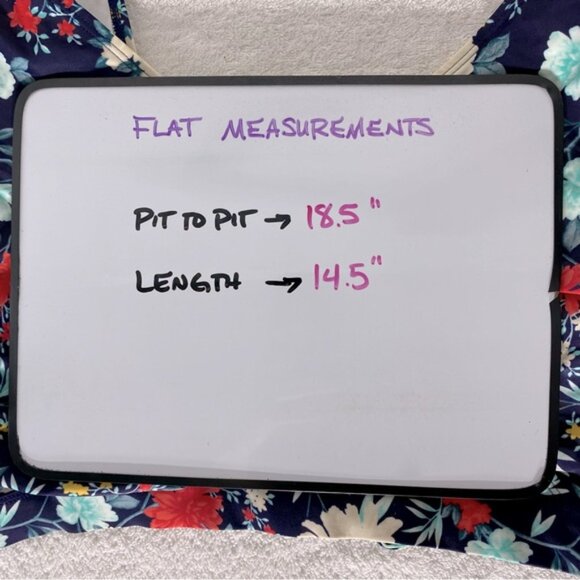 FLAT MEASUREMENTS
PIT TO PIT → 18.5"
LENGTH → 14.5"